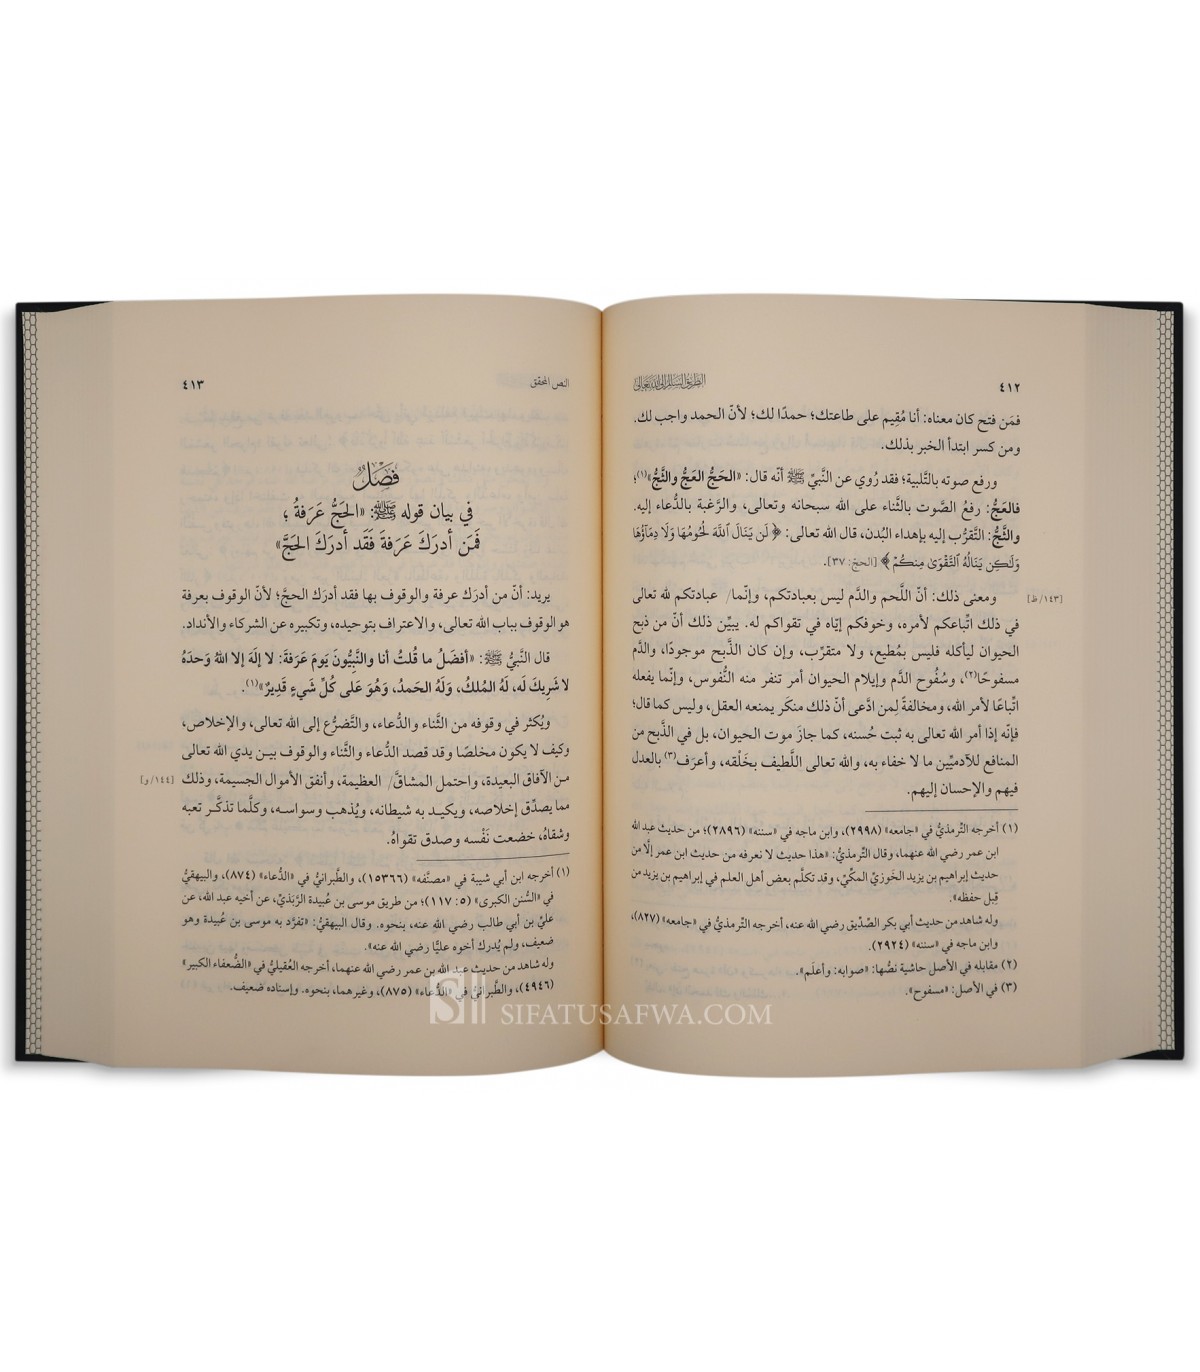 ٤١٢
الطريق السالم إلى الله تعالى
فمَن فتح كان معناه: أنا مُقِيم على طاعتك؛ حمدًا لك؛ لأنّ الحمد واجب لك.
ومن كسر ابتدأ الخبر بذلك.
ورفع صوته بالتَّلبية؛ فقد رُوي عن النَّبيِّ ﷺ أنه قال: «الحَجُّ العَجُّ والثَّجُّ»(١)؛
فالعَجُّ: رفعُ الصَّوت بالثَّناء على الله سبحانه وتعالى، والرَّغبة بالدُّعاء إليه.
والثَّجُّ: التَّقرُّب إليه بإهداء البُدن، قال الله تعالى: ﴿لَن يَنَالَ ٱللَّهَ لُحُومُهَا وَلَا دِمَآؤُهَا
وَلَـٰكِن يَنَالُهُ ٱلتَّقْوَىٰ مِنكُمْ﴾ [الحج: ٣٧].
ومعنى ذلك: أنّ اللَّحم والدَّم ليس بعبادتكم، وإنّما/ عبادتكم لله تعالى
[١٤٣/ظ]
في ذلك اتِّباعكم لأمره، وخوفكم إيّاه في تقواكم له. يبيِّن ذلك أنّ من ذبح
الحيوان ليأكله فليس بمُطيع، ولا متقرِّب، وإن كان الذَّبح موجودًا، والدَّم
مسفوحًا(٢)، وسُفُوح الدَّم وإيلام الحيوان أمر تنفر منه النُّفوس، وإنَّما يفعله
اتِّباعًا لأمر الله، ومخالفةً لِمن ادَّعى أنّ ذلك منكَر يمنعه العقل، وليس كما قال؛
فإنّه إذا أمر الله تعالى به ثبت حُسنه، كما جازَ موت الحيوان، بل في الذَّبح من
المنافع للآدميِّين ما لا خفاء به، والله تعالى اللَّطيف بخَلْقه، وأعرَف(٣) بالعدل
فيهم والإحسان إليهم.
(١) أخرجه التِّرمذيُّ في «جامعه» (٢٩٩٨)، وابن ماجه في «سننه» (٢٨٩٦)؛ من حديث عبد الله
ابن عمر رضي الله عنهما، وقال التِّرمذيُّ: «هذا حديث لا نعرفه من حديث ابن عمر إلَّا من
حديث إبراهيم بن يزيد الخَوزيّ المكّيّ، وقد تكلَّم بعض أهل العلم في إبراهيم بن يزيد من
قِبل حفظه».
وله شاهد من حديث أبي بكر الصّدّيق رضي الله عنه، أخرجه التِّرمذيُّ في «جامعه» (٨٢٧)،
وابن ماجه في «سننه» (٢٩٢٤).
(٢) مقابله في الأصل حاشية نصُّها: «صوابه: وأعلَم».
(٣) في الأصل: «مسفوح».
النص المحقق
٤١٣
فَصْلٌ
في بيان قوله ﷺ: «الحَجُّ عَرَفةُ؛
فَمَن أدرَكَ عَرَفةَ فَقَد أدرَكَ الحَجَّ»
يريد: أنّ من أدرَك عرفة والوقوف بها فقد أدرَك الحجَّ؛ لأنّ الوقوف بعرفة
هو الوقوف بباب الله تعالى، والاعتراف بتوحيده، وتكبيره عن الشركاء والأنداد.
قال النَّبيُّ ﷺ: «أفضَلُ ما قُلتُ أنا والنَّبِيُّونَ يَومَ عَرَفةَ: لا إلَهَ إلا اللهُ وَحدَهُ
لا شَرِيكَ لَه، لَهُ المُلكُ، وَلَهُ الحَمدُ، وَهُوَ عَلى كُلِّ شَيءٍ قَدِيرٌ»(١).
ويُكثر في وقوفه من الثَّناء والدُّعاء، والتَّضرُّع إلى الله تعالى، والإخلاص،
وكيف لا يكون مخلصًا وقد قصد الدُّعاء والثَّناء والوقوف بيـن يدي الله تعالى
مـن الآفاق البعيدة، واحتمل المشاقَّ/ العظيمة، وأنفق الأموال الجسيمة، وذلك
[١٤٤/و]
مما يصدِّق إخلاصه، ويكيـد به شيطانه، ويُذهب وسواسه، وكلَّما تذكَّـر تعبه
وشقاهُ، خضعت نَفْسه وصدق تقواهُ.
(١) أخرجه ابن أبي شيبة في «مصنَّفه» (١٥٣٦٦)، والطَّبرانيُّ في «الدُّعاء» (٨٧٤)، والبيهقيُّ
في «السُّنن الكبرى» (٥: ١١٧)؛ من طريق موسى بن عُبيدة الرَّبَذيّ، عن أخيه عبد الله، عن
عليِّ بن أبي طالب رضي الله عنه، بنحوه. وقال البيهقيُّ: «تفرَّد به موسى بن عُبيدة وهو
ضعيف، ولم يُدرك أخوه عليًّا رضي الله عنه».
وله شاهد من حديث عبد الله بن عمر رضي الله عنهما، أخرجه العُقيليُّ في «الضُّعفاء الكبير»
(٤٩٤٦)، والطَّبرانيُّ في «الدُّعاء» (٨٧٥)، وغيرهما، بنحوه. وإسناده ضعيف.
SIFATUSAFWA.COM